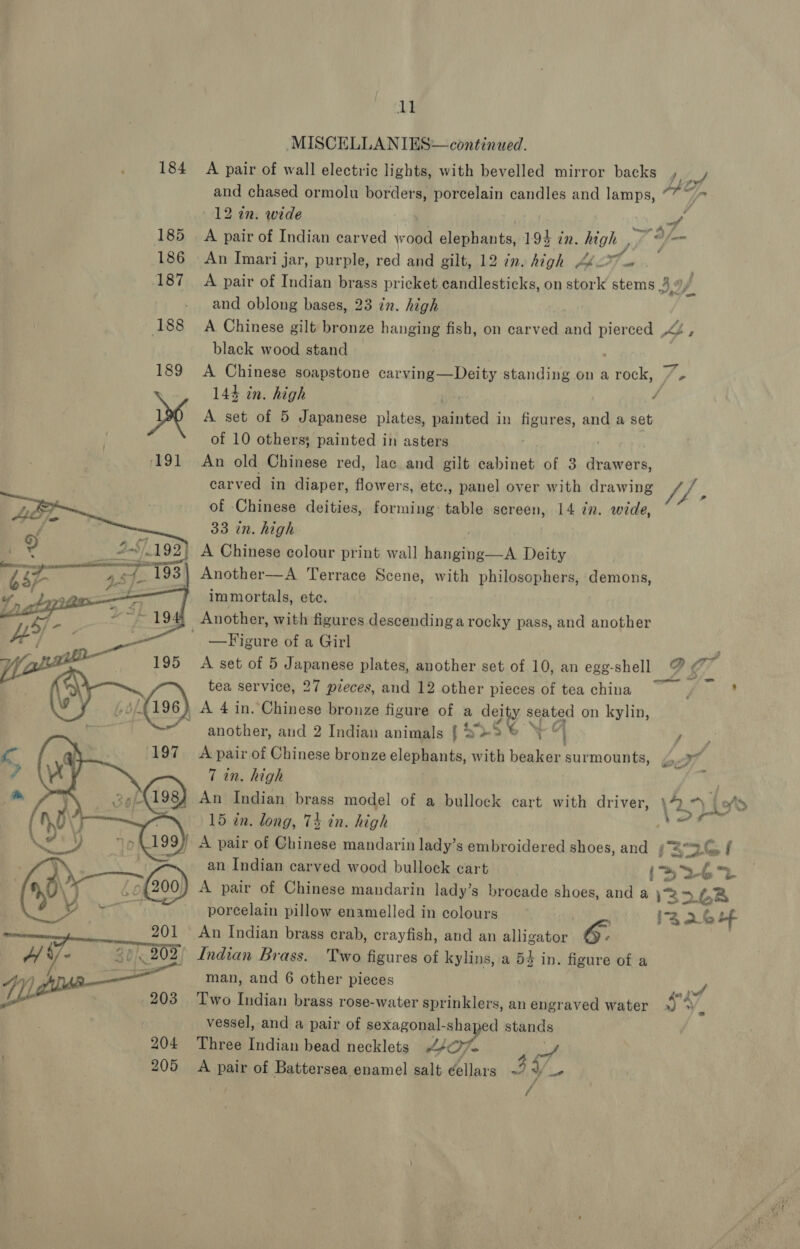 11
MISCELLANIES—continued.
184 A pair of wall electric lights, with bevelled mirror backs
and chased ormolu borders, porcelain candles and lamps,
12 in. wide
185 A pair of Indian carved wood elephants, 19½ in. high
186 An Imari jar, purple, red and gilt, 12 in. high
187 A pair of Indian brass pricket candlesticks, on stork stems
and oblong bases, 23 in. high
188 A Chinese gilt bronze hanging fish, on carved and pierced
black wood stand
189 A Chinese soapstone carving—Deity standing on a rock,
14½ in. high
190 A set of 5 Japanese plates, painted in figures, and a set
of 10 others; painted in asters
191 An old Chinese red, lac and gilt cabinet of 3 drawers,
carved in diaper, flowers, etc., panel over with drawing
of Chinese deities, forming table screen, 14 in. wide,
33 in. high
192 A Chinese colour print wall hanging—A Deity
193 Another—A Terrace Scene, with philosophers, demons,
immortals, etc.
194 Another, with figures descending a rocky pass, and another
—Figure of a Girl
195 A set of 5 Japanese plates, another set of 10, an egg-shell
tea service, 27 pieces, and 12 other pieces of tea china
196 A 4 in. Chinese bronze figure of a deity seated on kylin,
another, and 2 Indian animals
197 A pair of Chinese bronze elephants, with beaker surmounts,
7 in. high
198 An Indian brass model of a bullock cart with driver,
15 in. long, 7½ in. high
199 A pair of Chinese mandarin lady's embroidered shoes, and
an Indian carved wood bullock cart
200 A pair of Chinese mandarin lady's brocade shoes, and a
porcelain pillow enamelled in colours
201 An Indian brass crab, crayfish, and an alligator
202 Indian Brass. Two figures of kylins, a 5½ in. figure of a
man, and 6 other pieces
203 Two Indian brass rose-water sprinklers, an engraved water
vessel, and a pair of sexagonal-shaped stands
204 Three Indian bead necklets
205 A pair of Battersea enamel salt cellars